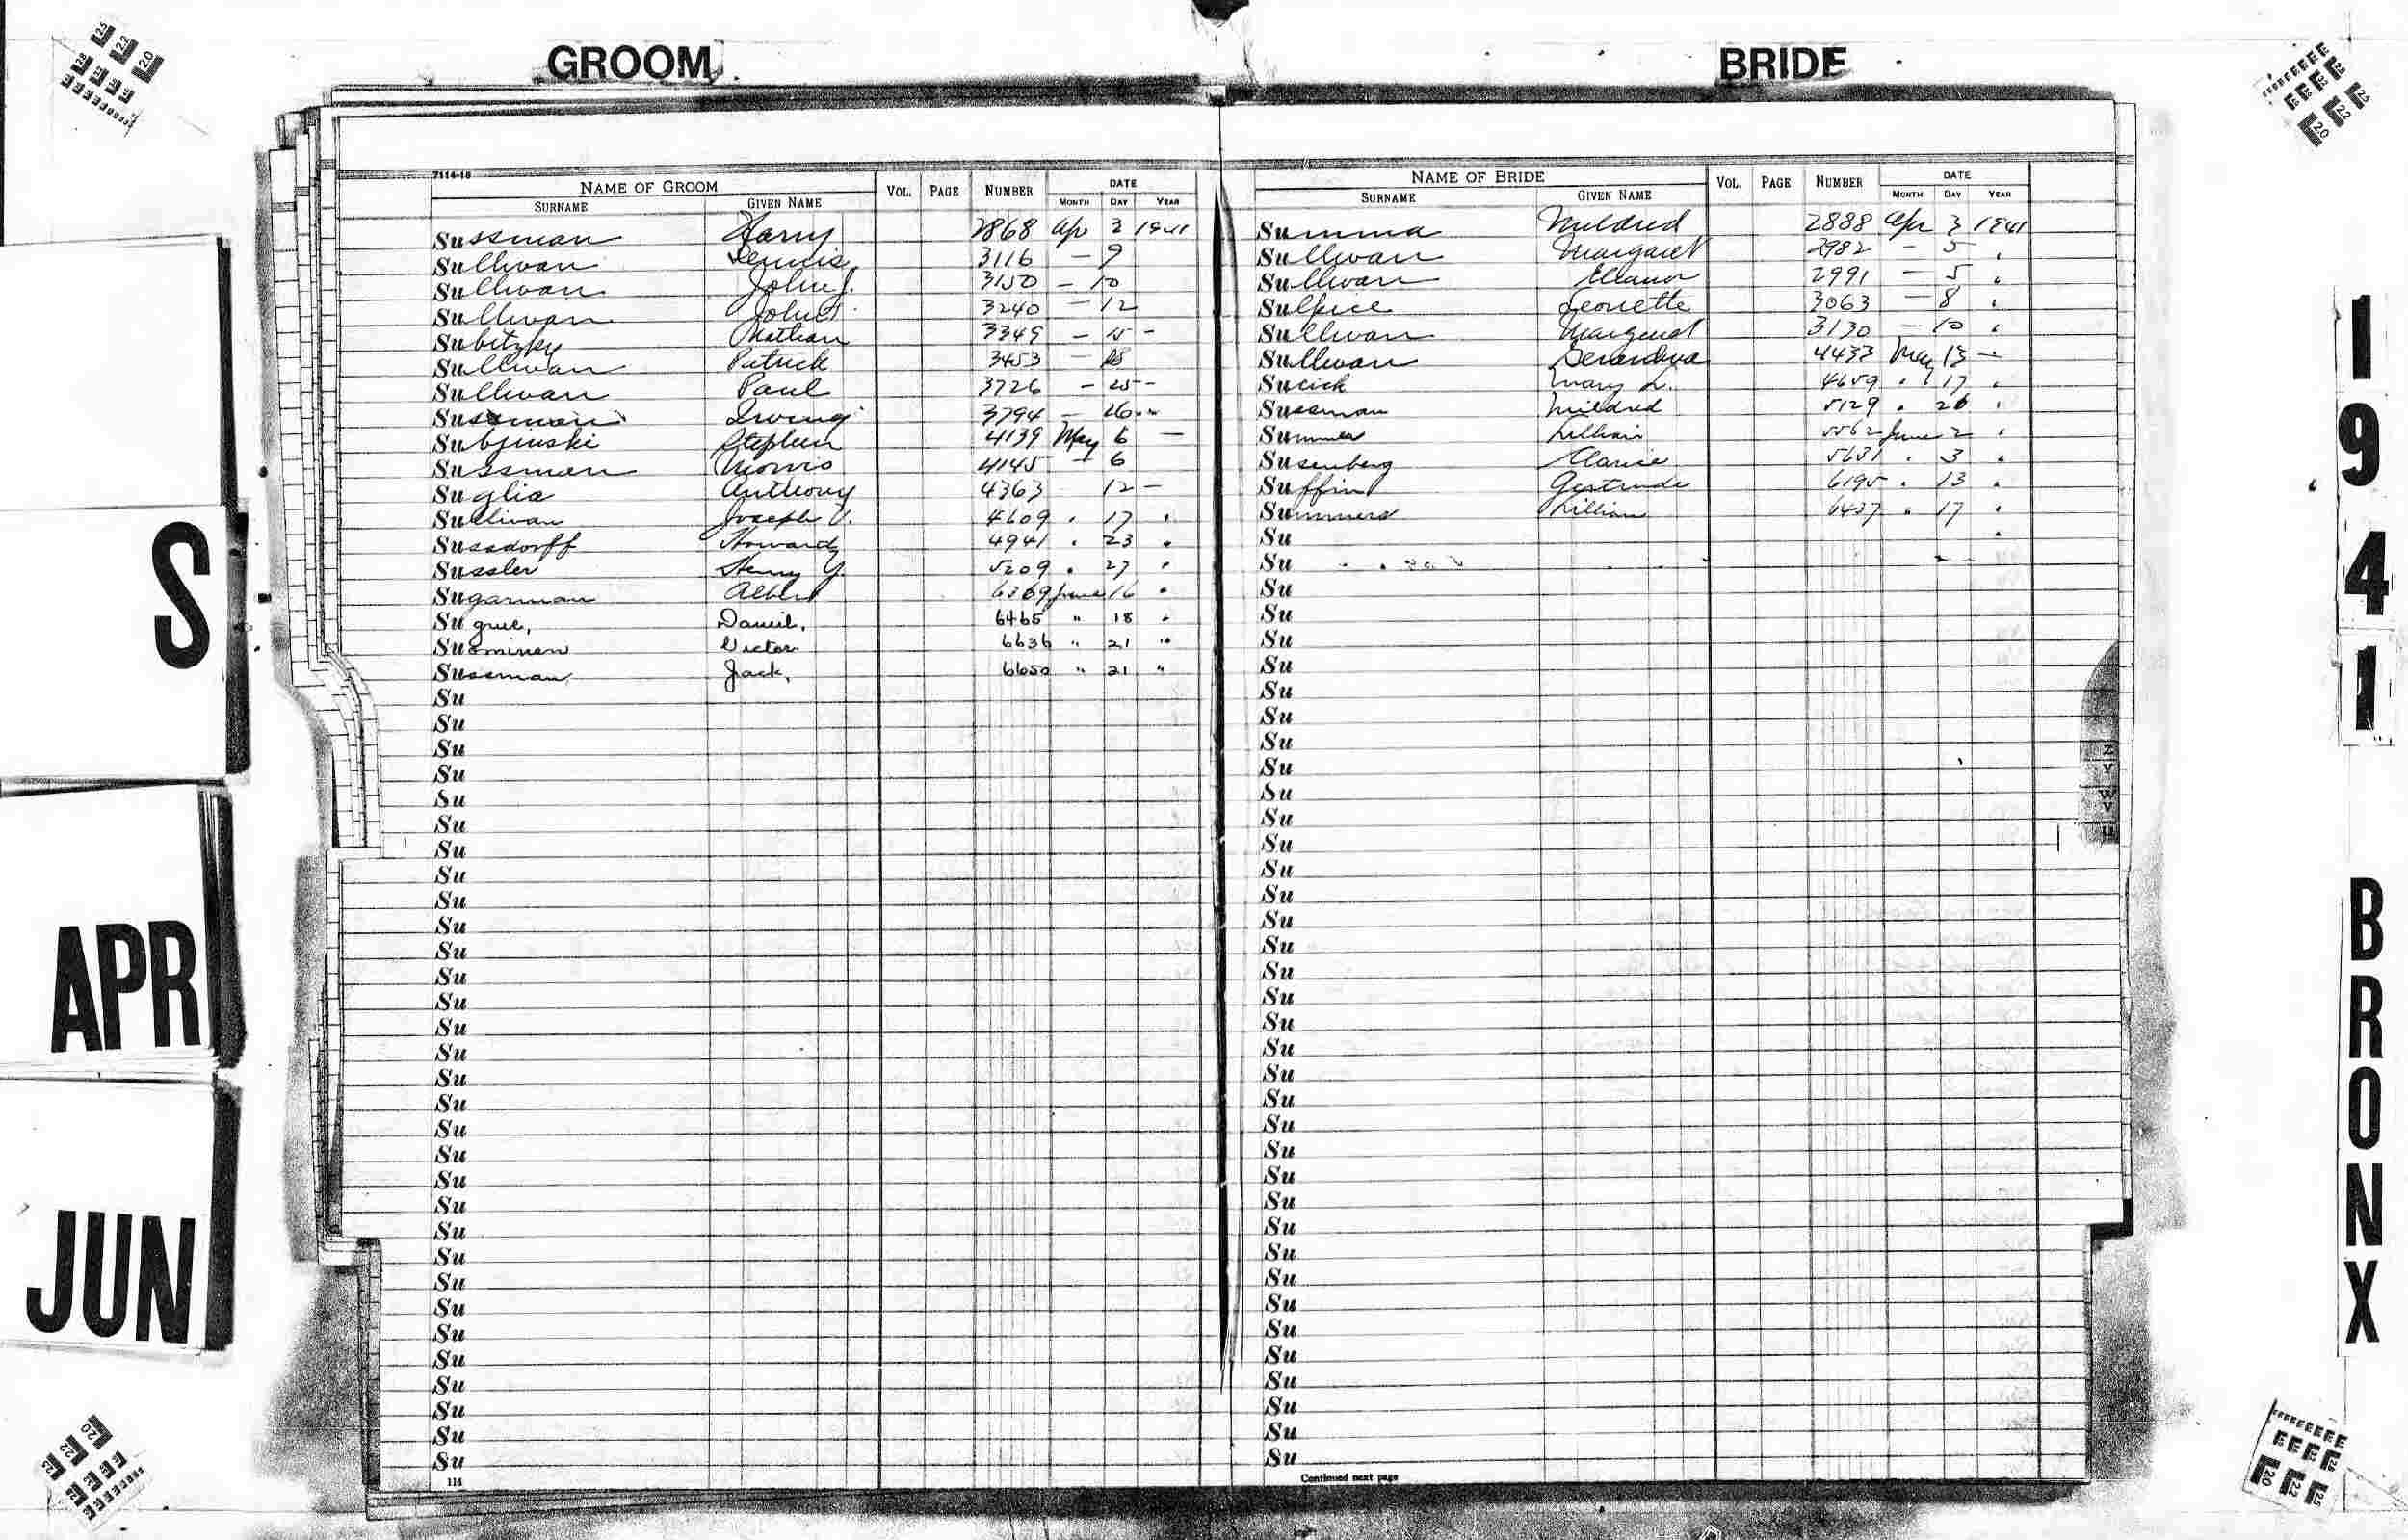 GROOM
BRIDE
S
APR
JUN
1941
BRONX
7114-18
NAME OF GROOM VOL. PAGE NUMBER DATE
SURNAME GIVEN NAME MONTH DAY YEAR
Sussman Harry 2868 Apr 3 1941
Sullivan Dennis 3116 — 9
Sullivan John J. 3150 — 10
Sullivan John 3240 — 12
Subitzky Nathan 3349 — 15 —
Sullivan Patrick 3453 — 18
Sullivan Paul 3726 — 25 —
Sussman Irving 3794 — 26
Subjinski Stephen 4139 May 6 —
Sussman Morris 4145 — 6
Suglia Anthony 4363 12 —
Sullivan Joseph V. 4609 " 17 "
Sussdorff Howard 4941 " 23 "
Sussler Henry Y. 5209 " 27 "
Sugarman Albert 6369 June 16 "
Sugrue, Daniel, 6465 " 18 "
Suominen Victor 6636 " 21 "
Sussman, Jack, 6650 " 21 "
Su
Su
Su
Su
Su
Su
Su
Su
Su
Su
Su
Su
Su
Su
Su
Su
Su
Su
Su
Su
Su
Su
Su
Su
Su
Su
Su
Su
Su
Su
Su
114
NAME OF BRIDE VOL. PAGE NUMBER DATE
SURNAME GIVEN NAME MONTH DAY YEAR
Summa Mildred 2888 Apr 3 1941
Sullivan Margaret 2982 — 5 "
Sullivan Eleanor 2991 — 5 "
Sulpice Leonette 3063 — 8 "
Sullivan Margaret 3130 — 10 "
Sullivan 4433 May 13 —
Sucich Mary L. 4659 " 17 "
Sussman Mildred 5129 " 26 "
Summer Lillian 5562 June 2 "
Susenberg Clarice 5631 " 3 "
Suffin Gertrude 6195 " 13 "
Summers Lillian 6437 " 17 "
Su
Su
Su
Su
Su
Su
Su
Su
Su
Su
Su
Su
Su
Su
Su
Su
Su
Su
Su
Su
Su
Su
Su
Su
Su
Su
Su
Su
Su
Su
Su
Su
Su
Su
Su
Su
Su
Continued next page
Z
Y
W
V
U